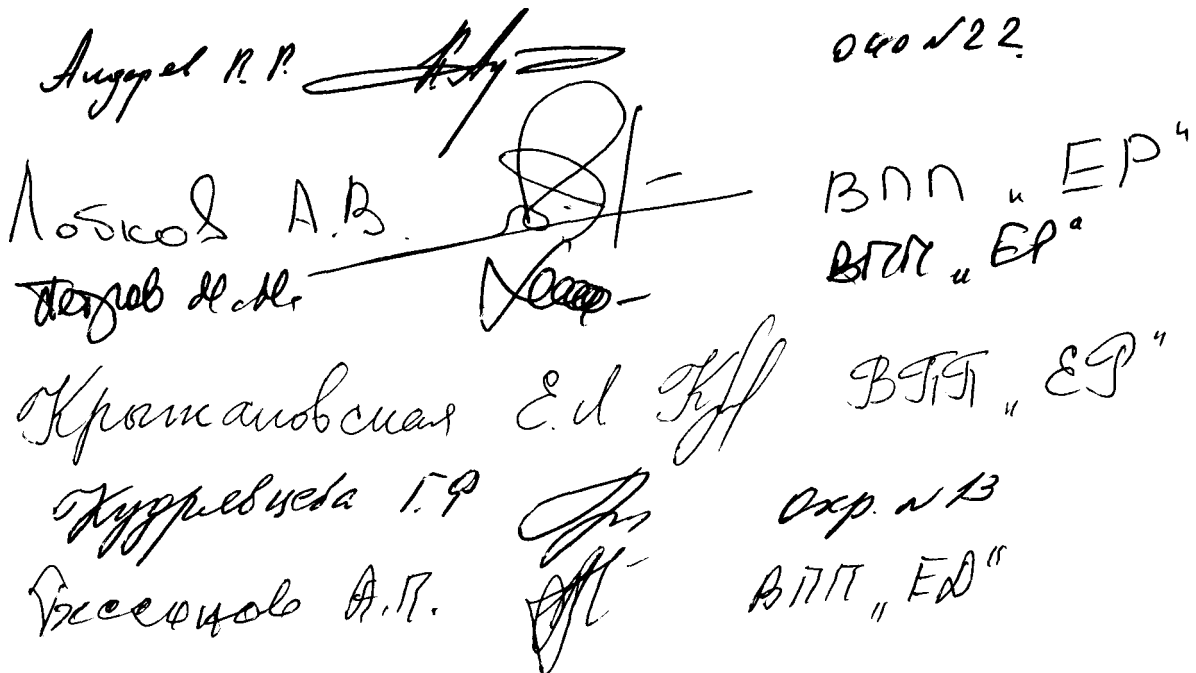 Андреев П. Р. око №22
Лобков А.В. ВПП „ЕР“
Петров М.М. ВПП „ЕР“
Крыжановская Е.Л ВПП „ЕР“
Кудрявцева Г.Ф окр. №13
Бессонов А.П. ВПП „ЕД“